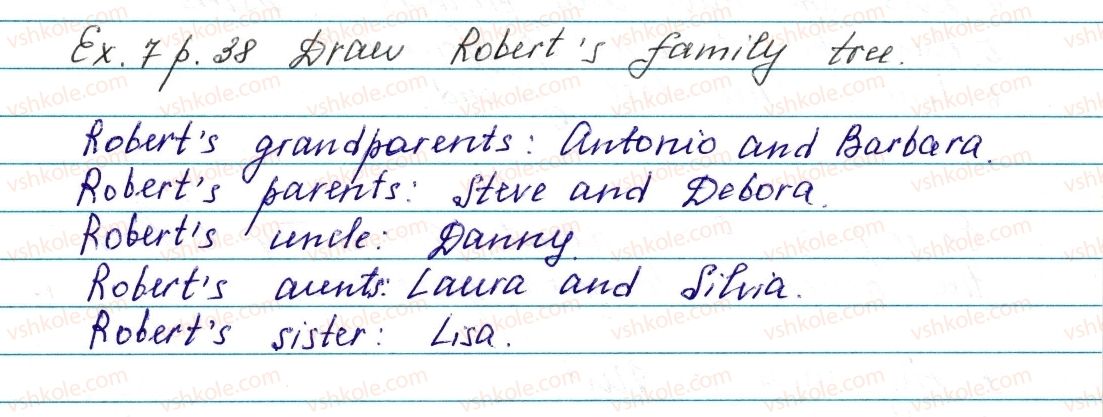 Ex. 7 p. 38 Draw Robert's family tree.
Robert's grandparents: Antonio and Barbara.
Robert's parents: Steve and Debora.
Robert's uncle: Danny.
Robert's aunts: Laura and Silvia.
Robert's sister: Lisa.